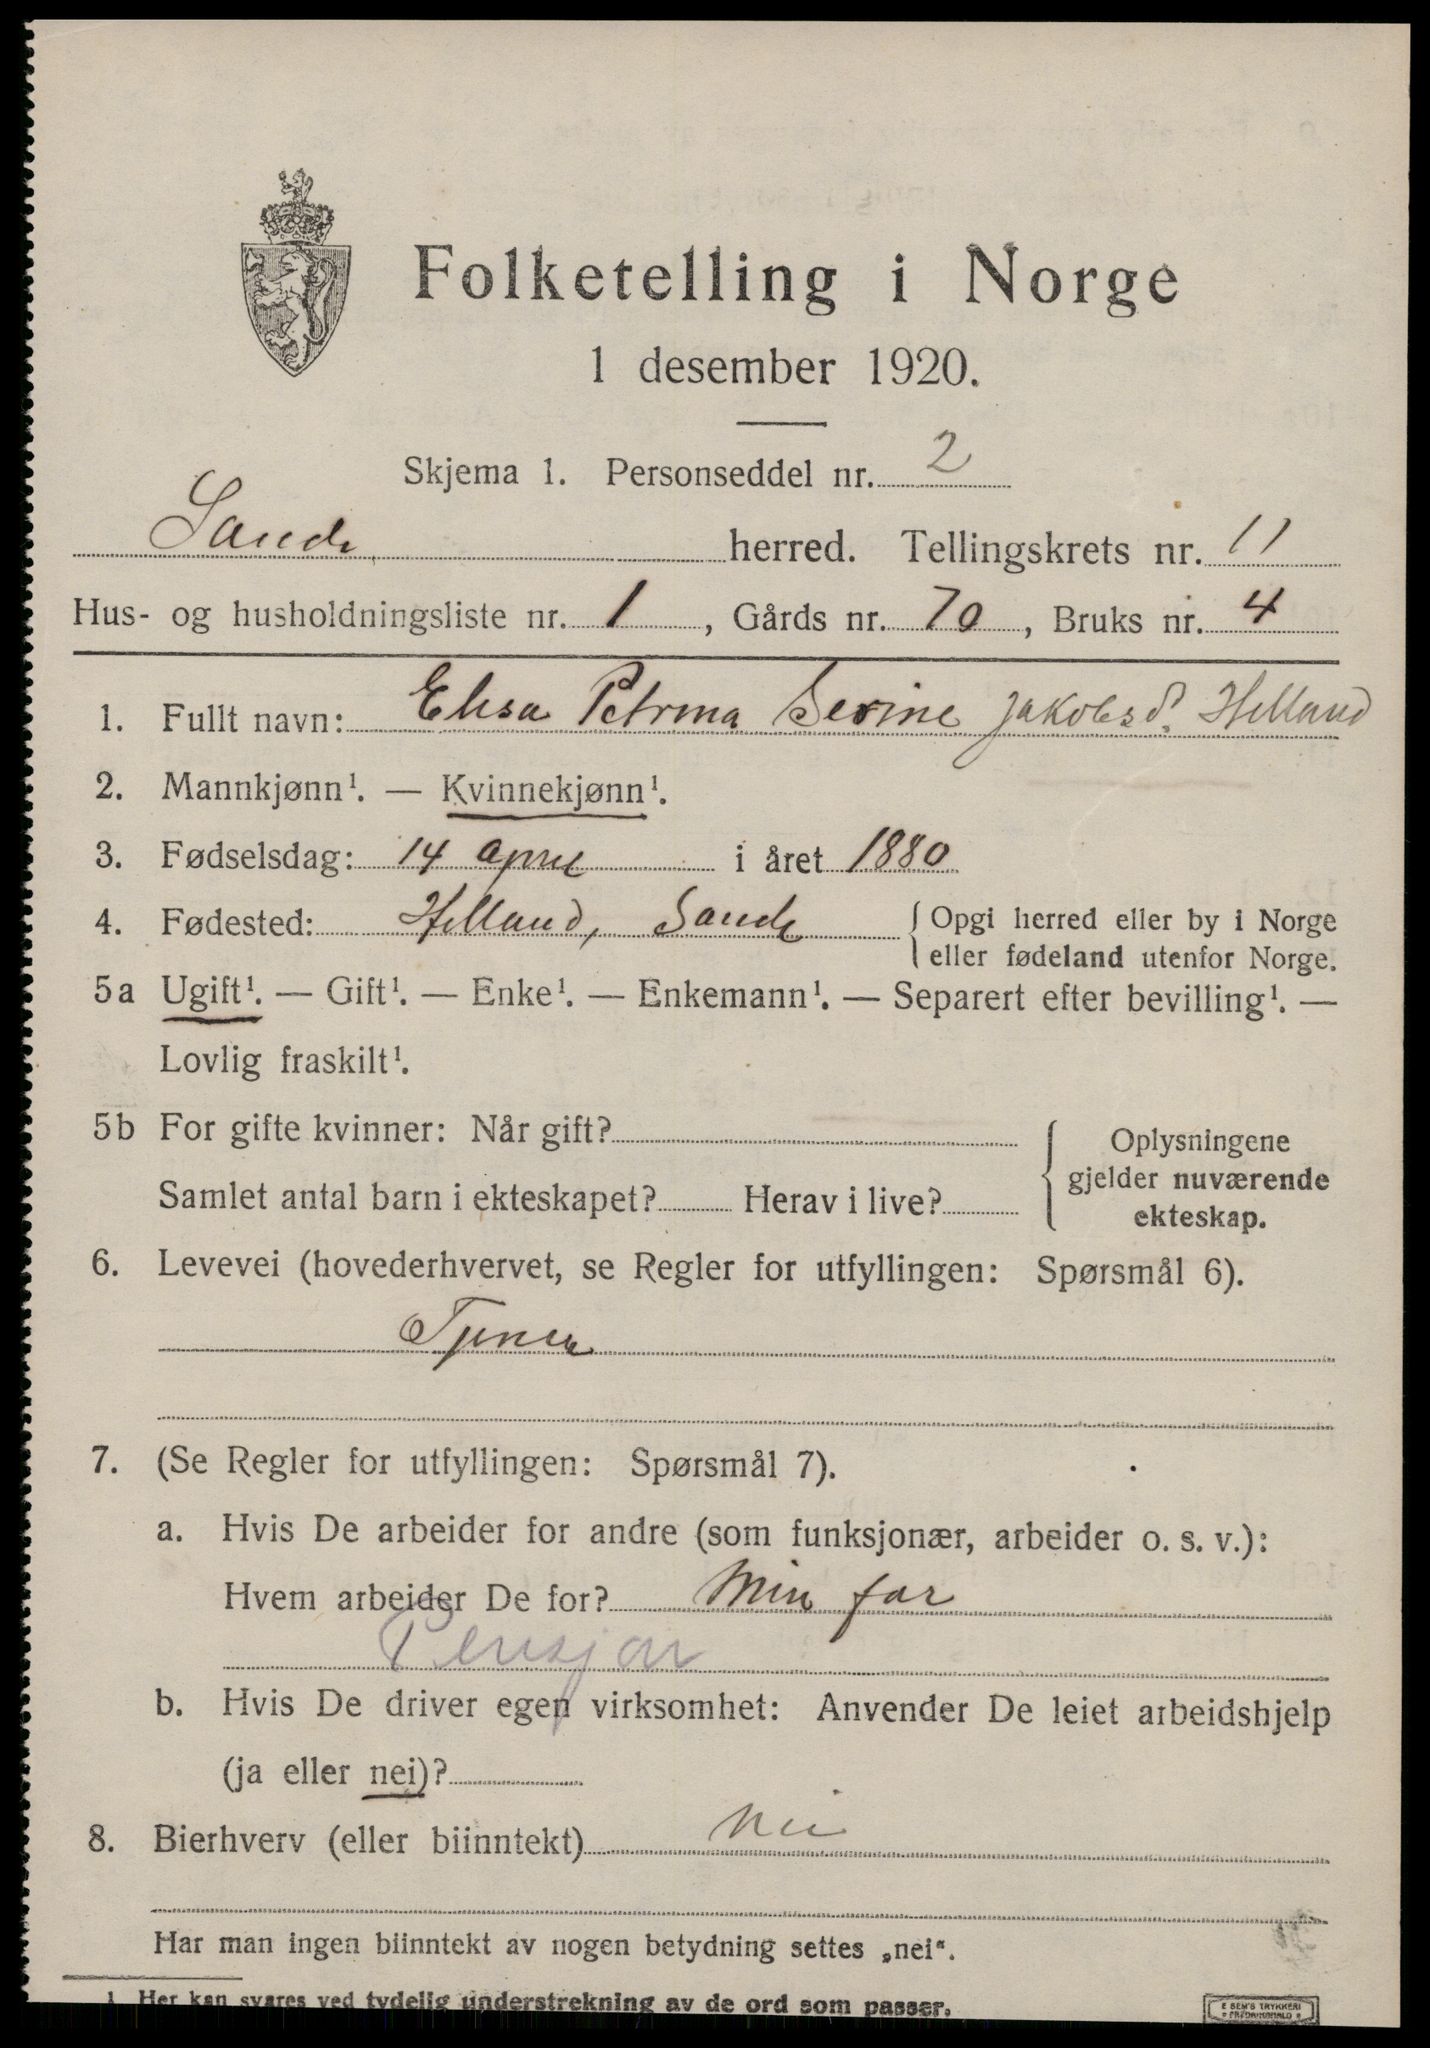 Folketelling i Norge
1 desember 1920.
Skjema 1. Personseddel nr. 2
Sande herred. Tellingskrets nr. 11
Hus- og husholdningsliste nr. 1, Gårds nr. 70, Bruks nr. 4
1. Fullt navn: Elisa Petrina Serine Jakobsd. Helland
2. Mannkjønn¹. — Kvinnekjønn¹.
3. Fødselsdag: 14 april i året 1880
4. Fødested: Helland, Sande { Opgi herred eller by i Norge
eller fødeland utenfor Norge.
5a Ugift¹. — Gift¹. — Enke¹. — Enkemann¹. — Separert efter bevilling¹. —
Lovlig fraskilt¹.
5b For gifte kvinner: Når gift?
Samlet antal barn i ekteskapet? Herav i live?
Oplysningene
gjelder nuværende
ekteskap.
6. Levevei (hovederhvervet, se Regler for utfyllingen: Spørsmål 6).
Tjener
7. (Se Regler for utfyllingen: Spørsmål 7).
a. Hvis De arbeider for andre (som funksjonær, arbeider o. s. v.):
Hvem arbeider De for? Min far
Pensjon
b. Hvis De driver egen virksomhet: Anvender De leiet arbeidshjelp
(ja eller nei)?
8. Bierhverv (eller biinntekt) nei
Har man ingen biinntekt av nogen betydning settes „nei“.
1 Her kan svares ved tydelig understrekning av de ord som passer.
E SEM'S TRYKKERI
FREDRIKSHALD